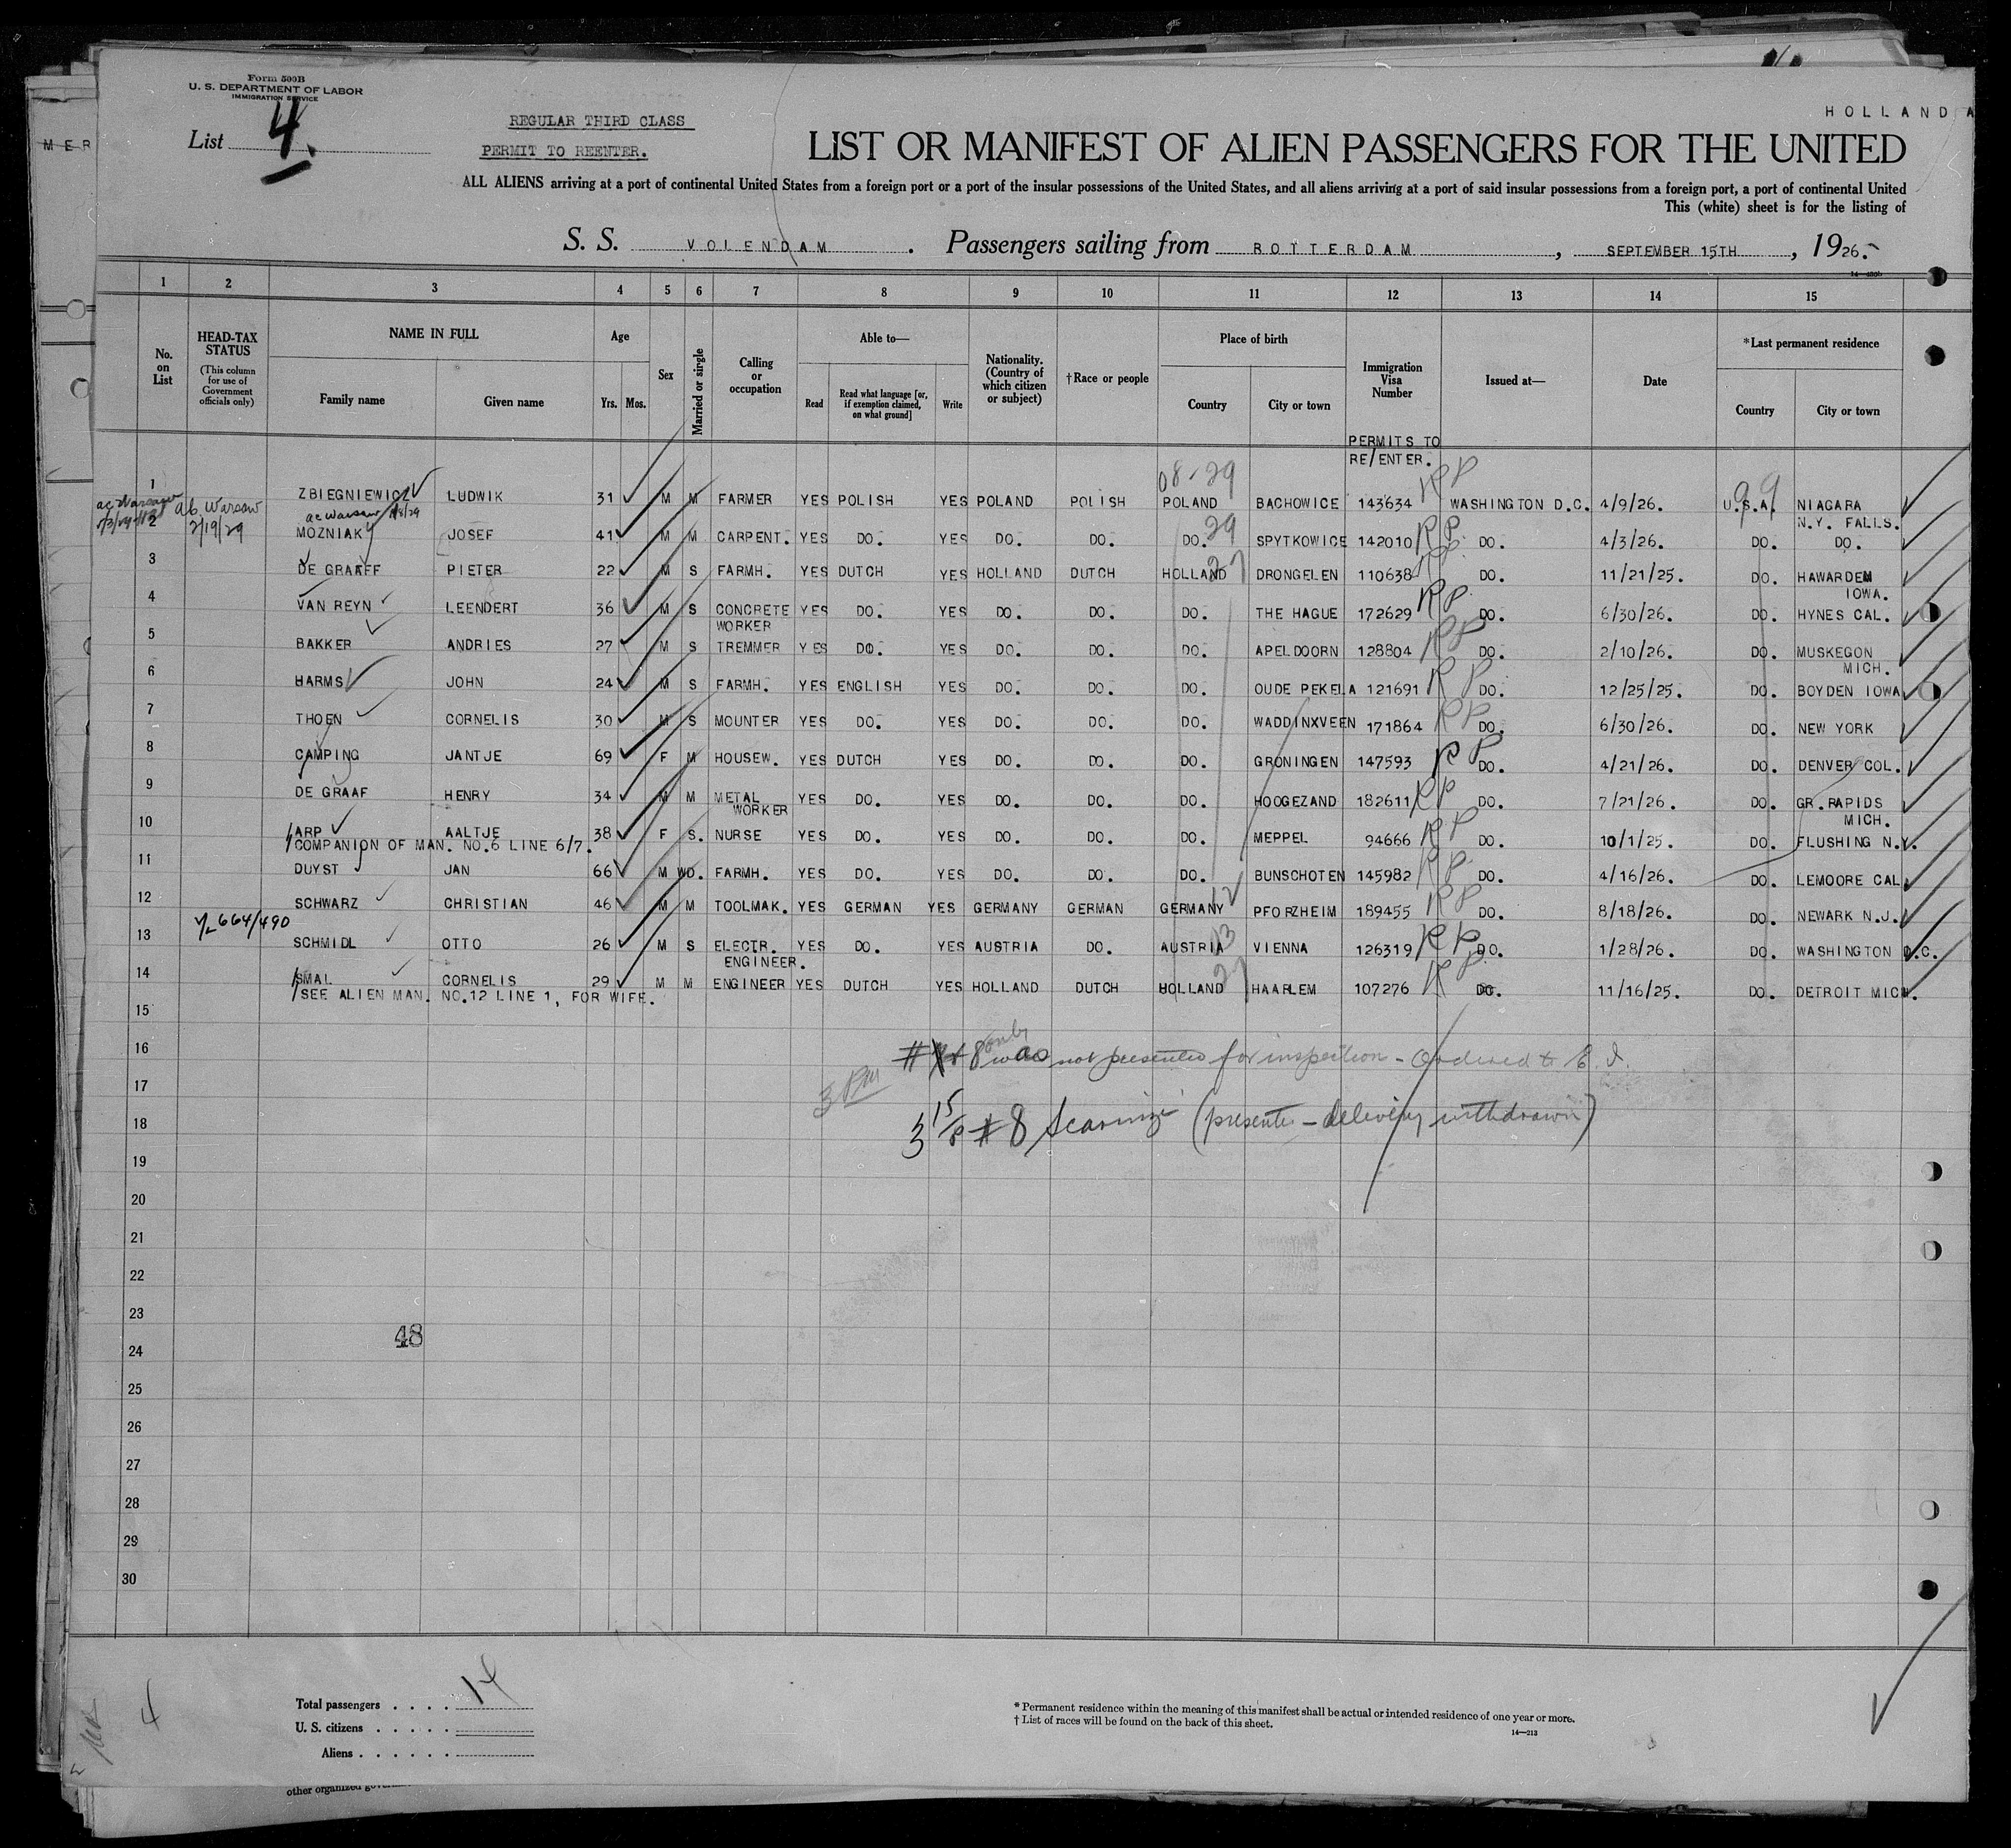 Form 500B
U. S. DEPARTMENT OF LABOR
IMMIGRATION SERVICE
HOLLAND A
MER
List 4.
REGULAR THIRD CLASS
PERMIT TO REENTER.
LIST OR MANIFEST OF ALIEN PASSENGERS FOR THE UNITED
ALL ALIENS arriving at a port of continental United States from a foreign port or a port of the insular possessions of the United States, and all aliens arriving at a port of said insular possessions from a foreign port, a port of continental United
This (white) sheet is for the listing of
S. S. VOLENDAM . Passengers sailing from ROTTERDAM , SEPTEMBER 15TH , 1926.
1 2 3 4 5 6 7 8 9 10 11 12 13 14 15
No. on List HEAD-TAX STATUS (This column for use of Government officials only) NAME IN FULL Family name Given name Age Yrs. Mos. Sex Married or single Calling or occupation Able to— Read Read what language [or, if exemption claimed, on what ground] Write Nationality. (Country of which citizen or subject) †Race or people Place of birth Country City or town Immigration Visa Number Issued at— Date *Last permanent residence Country City or town
PERMITS TO
RE/ENTER.
08-29
1 ZBIEGNIEWICZ LUDWIK 31 M M FARMER YES POLISH YES POLAND POLISH POLAND BACHOWICE 143634 RP WASHINGTON D.C. 4/9/26. U.S.A. 99 NIAGARA
N.Y. FALLS.
ac Warsaw ab Warsaw 2/19/29 ac Warsaw
2 MOZNIAK JOSEF 41 M M CARPENT. YES DO. YES DO. DO. DO. 29 SPYTKOWICE 142010 RP DO. 4/3/26. DO. DO.
3 DE GRAAFF PIETER 22 M S FARMH. YES DUTCH YES HOLLAND DUTCH HOLLAND 27 DRONGELEN 110638 RP DO. 11/21/25. DO. HAWARDEN
IOWA.
4 VAN REYN LEENDERT 36 M S CONCRETE YES DO. YES DO. DO. DO. THE HAGUE 172629 RP DO. 6/30/26. DO. HYNES CAL.
WORKER
5 BAKKER ANDRIES 27 M S TREMMER YES DO. YES DO. DO. DO. APELDOORN 128804 RP DO. 2/10/26. DO. MUSKEGON
MICH.
6 HARMS JOHN 24 M S FARMH. YES ENGLISH YES DO. DO. DO. OUDE PEKELA 121691 RP DO. 12/25/25. DO. BOYDEN IOWA
7 THOEN CORNELIS 30 M S MOUNTER YES DO. YES DO. DO. DO. WADDINXVEEN 171864 RP DO. 6/30/26. DO. NEW YORK
8 CAMPING JANTJE 69 F M HOUSEW. YES DUTCH YES DO. DO. DO. GRONINGEN 147593 RP DO. 4/21/26. DO. DENVER COL.
9 DE GRAAF HENRY 34 M M METAL YES DO. YES DO. DO. DO. HOOGEZAND 182611 RP DO. 7/21/26. DO. GR.RAPIDS
WORKER MICH.
10 ARP AALTJE 38 F S. NURSE YES DO. YES DO. DO. DO. MEPPEL 94666 RP DO. 10/1/25. DO. FLUSHING N.Y.
COMPANION OF MAN. NO.6 LINE 6/7.
11 DUYST JAN 66 M WD. FARMH. YES DO. YES DO. DO. DO. BUNSCHOTEN 145982 RP DO. 4/16/26. DO. LEMOORE CAL.
12 SCHWARZ CHRISTIAN 46 M M TOOLMAK. YES GERMAN YES GERMANY GERMAN GERMANY 12 PFORZHEIM 189455 RP DO. 8/18/26. DO. NEWARK N.J.
664/490
13 SCHMIDL OTTO 26 M S ELECTR. YES DO. YES AUSTRIA DO. AUSTRIA 13 VIENNA 126319 RP DO. 1/28/26. DO. WASHINGTON D.C.
ENGINEER.
14 SMAL CORNELIS 29 M M ENGINEER YES DUTCH YES HOLLAND DUTCH HOLLAND 27 HAARLEM 107276 RP DO. 11/16/25. DO. DETROIT MICH.
SEE ALIEN MAN. NO.12 LINE 1, FOR WIFE.
15
16 # 8 only was not presented for inspection - Ordered to E. I.
17 3 PM
18 3 15/P # 8 (presented - delivery withdrawn)
19
20
21
22
23
48
24
25
26
27
28
29
30
4
Total passengers . . . . 14
U. S. citizens . . . . .
Aliens . . . . . .
* Permanent residence within the meaning of this manifest shall be actual or intended residence of one year or more.
† List of races will be found on the back of this sheet.
14—213
other organized